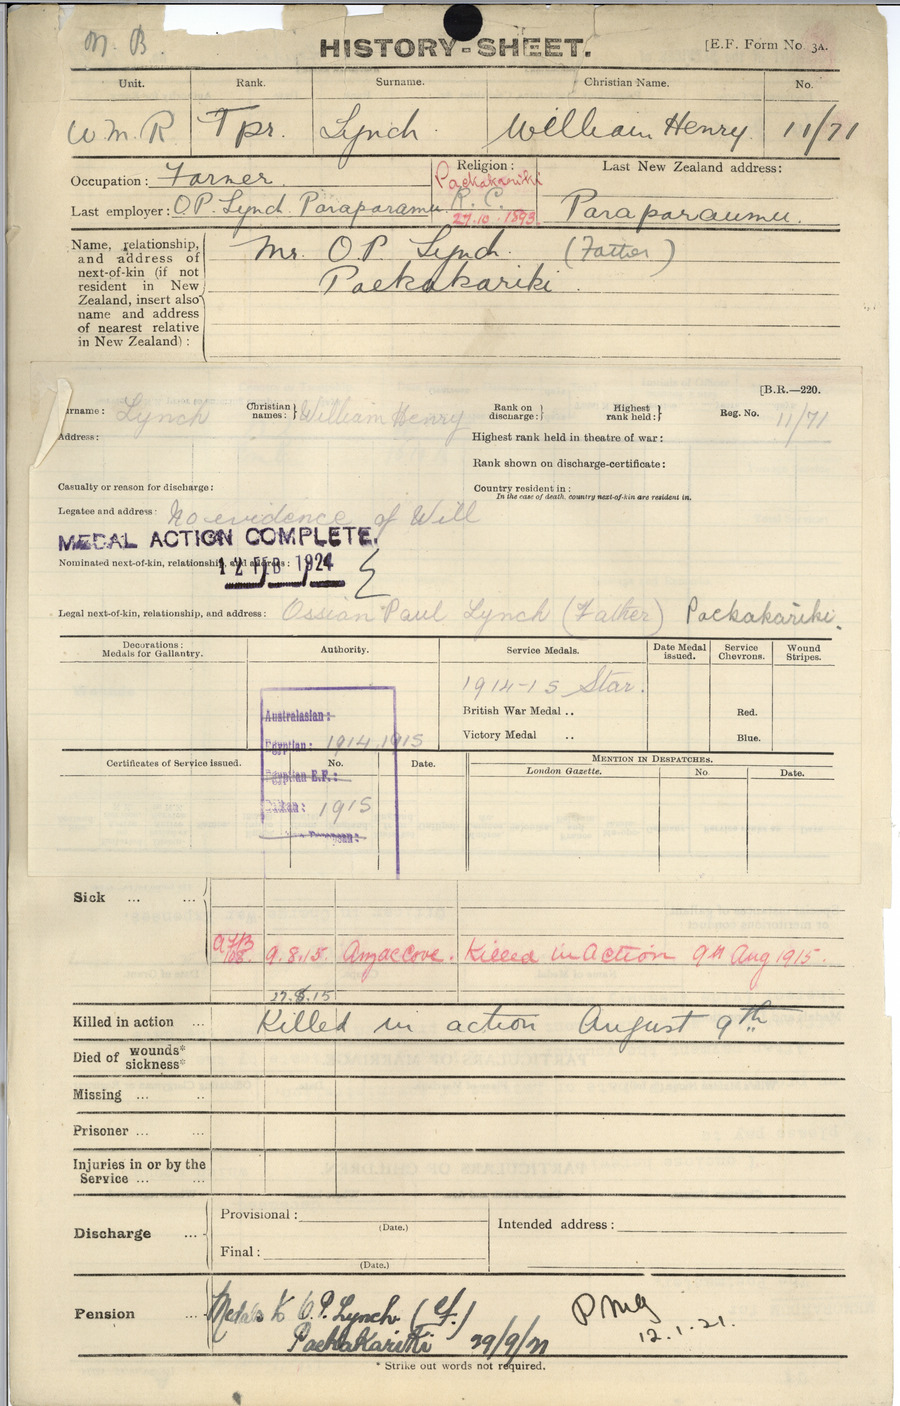 N. B.
HISTORY-SHEET.
[E.F. Form No. 3A.
Unit. Rank. Surname. Christian Name. No.
W.M.R Tpr. Lynch. William Henry. 11/71
Occupation: Farmer. Religion: Last New Zealand address:
Paekakariki
Last employer: O.P. Lynch. Paraparamu R. C. Paraparaumu.
27.10.1893
Name, relationship, and address of next-of-kin (if not resident in New Zealand, insert also name and address of nearest relative in New Zealand):
Mr. O.P. Lynch. (Father)
Paekakariki.
[B.R.—220.
Surname: Lynch Christian names: William Henry Rank on discharge: Highest rank held: Reg. No. 11/71
Address: Highest rank held in theatre of war:
Rank shown on discharge-certificate:
Casualty or reason for discharge: Country resident in:
In the case of death, country next-of-kin are resident in.
Legatee and address: No evidence of Will
MEDAL ACTION COMPLETE.
Nominated next-of-kin, relationship, and address: 12 FEB 1924
Legal next-of-kin, relationship, and address: Ossian Paul Lynch (Father) Paekakariki.
Decorations: Medals for Gallantry. Authority. Service Medals. Date Medal issued. Service Chevrons. Wound Stripes.
1914-15 Star.
Australasian:
British War Medal .. Red.
Egyptian: 1914.1915
Victory Medal .. Blue.
Certificates of Service issued. No. Date. MENTION IN DESPATCHES.
London Gazette. No. Date.
Egyptian E.F.:
Balkan: 1915
European:
Sick ... ...
A.F.B 103. 9.8.15. Anzac Cove. Killed in Action 9th Aug 1915.
27.8.15
Killed in action ... Killed in action August 9th
Died of wounds* sickness*
Missing ... ..
Prisoner ... ...
Injuries in or by the Service ... ...
Discharge ... Provisional: (Date.) Intended address:
Final: (Date.)
Pension ... Medals to O.P. Lynch (f.) PMG
Paekakariki 29/9/21 12.1.21.
* Strike out words not required.